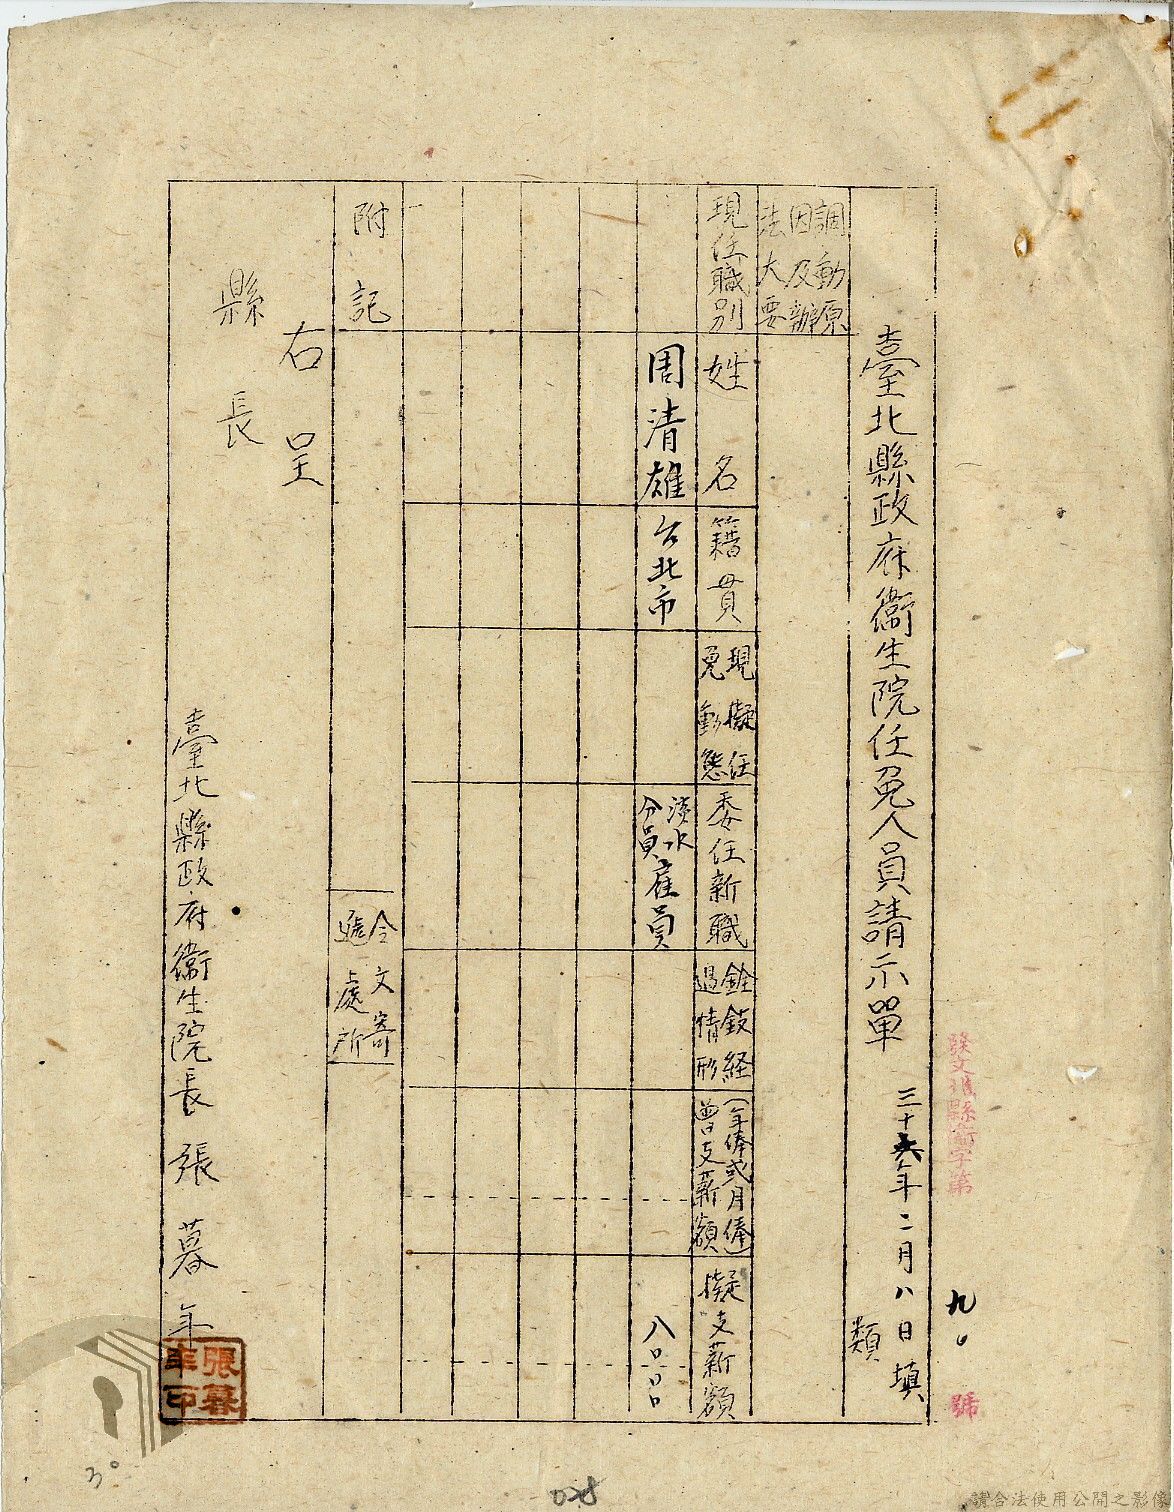 發文北縣衛字第 九〇 號
臺北縣政府衛生院任免人員請示單
三十六年二月八日填
類
調動原因及辦法大要
現任職別
姓名
籍貫
現擬任免動態
委任新職
銓敍経過情形
(年俸或月俸)曾支薪額
擬支薪額
周清雄
台北市
淡水分員雇員
八〇〇〇
附記
令文寄遞處所
右呈
縣長
臺北縣政府衛生院長張暮年
張暮年印
30
078
請合法使用公開之影像